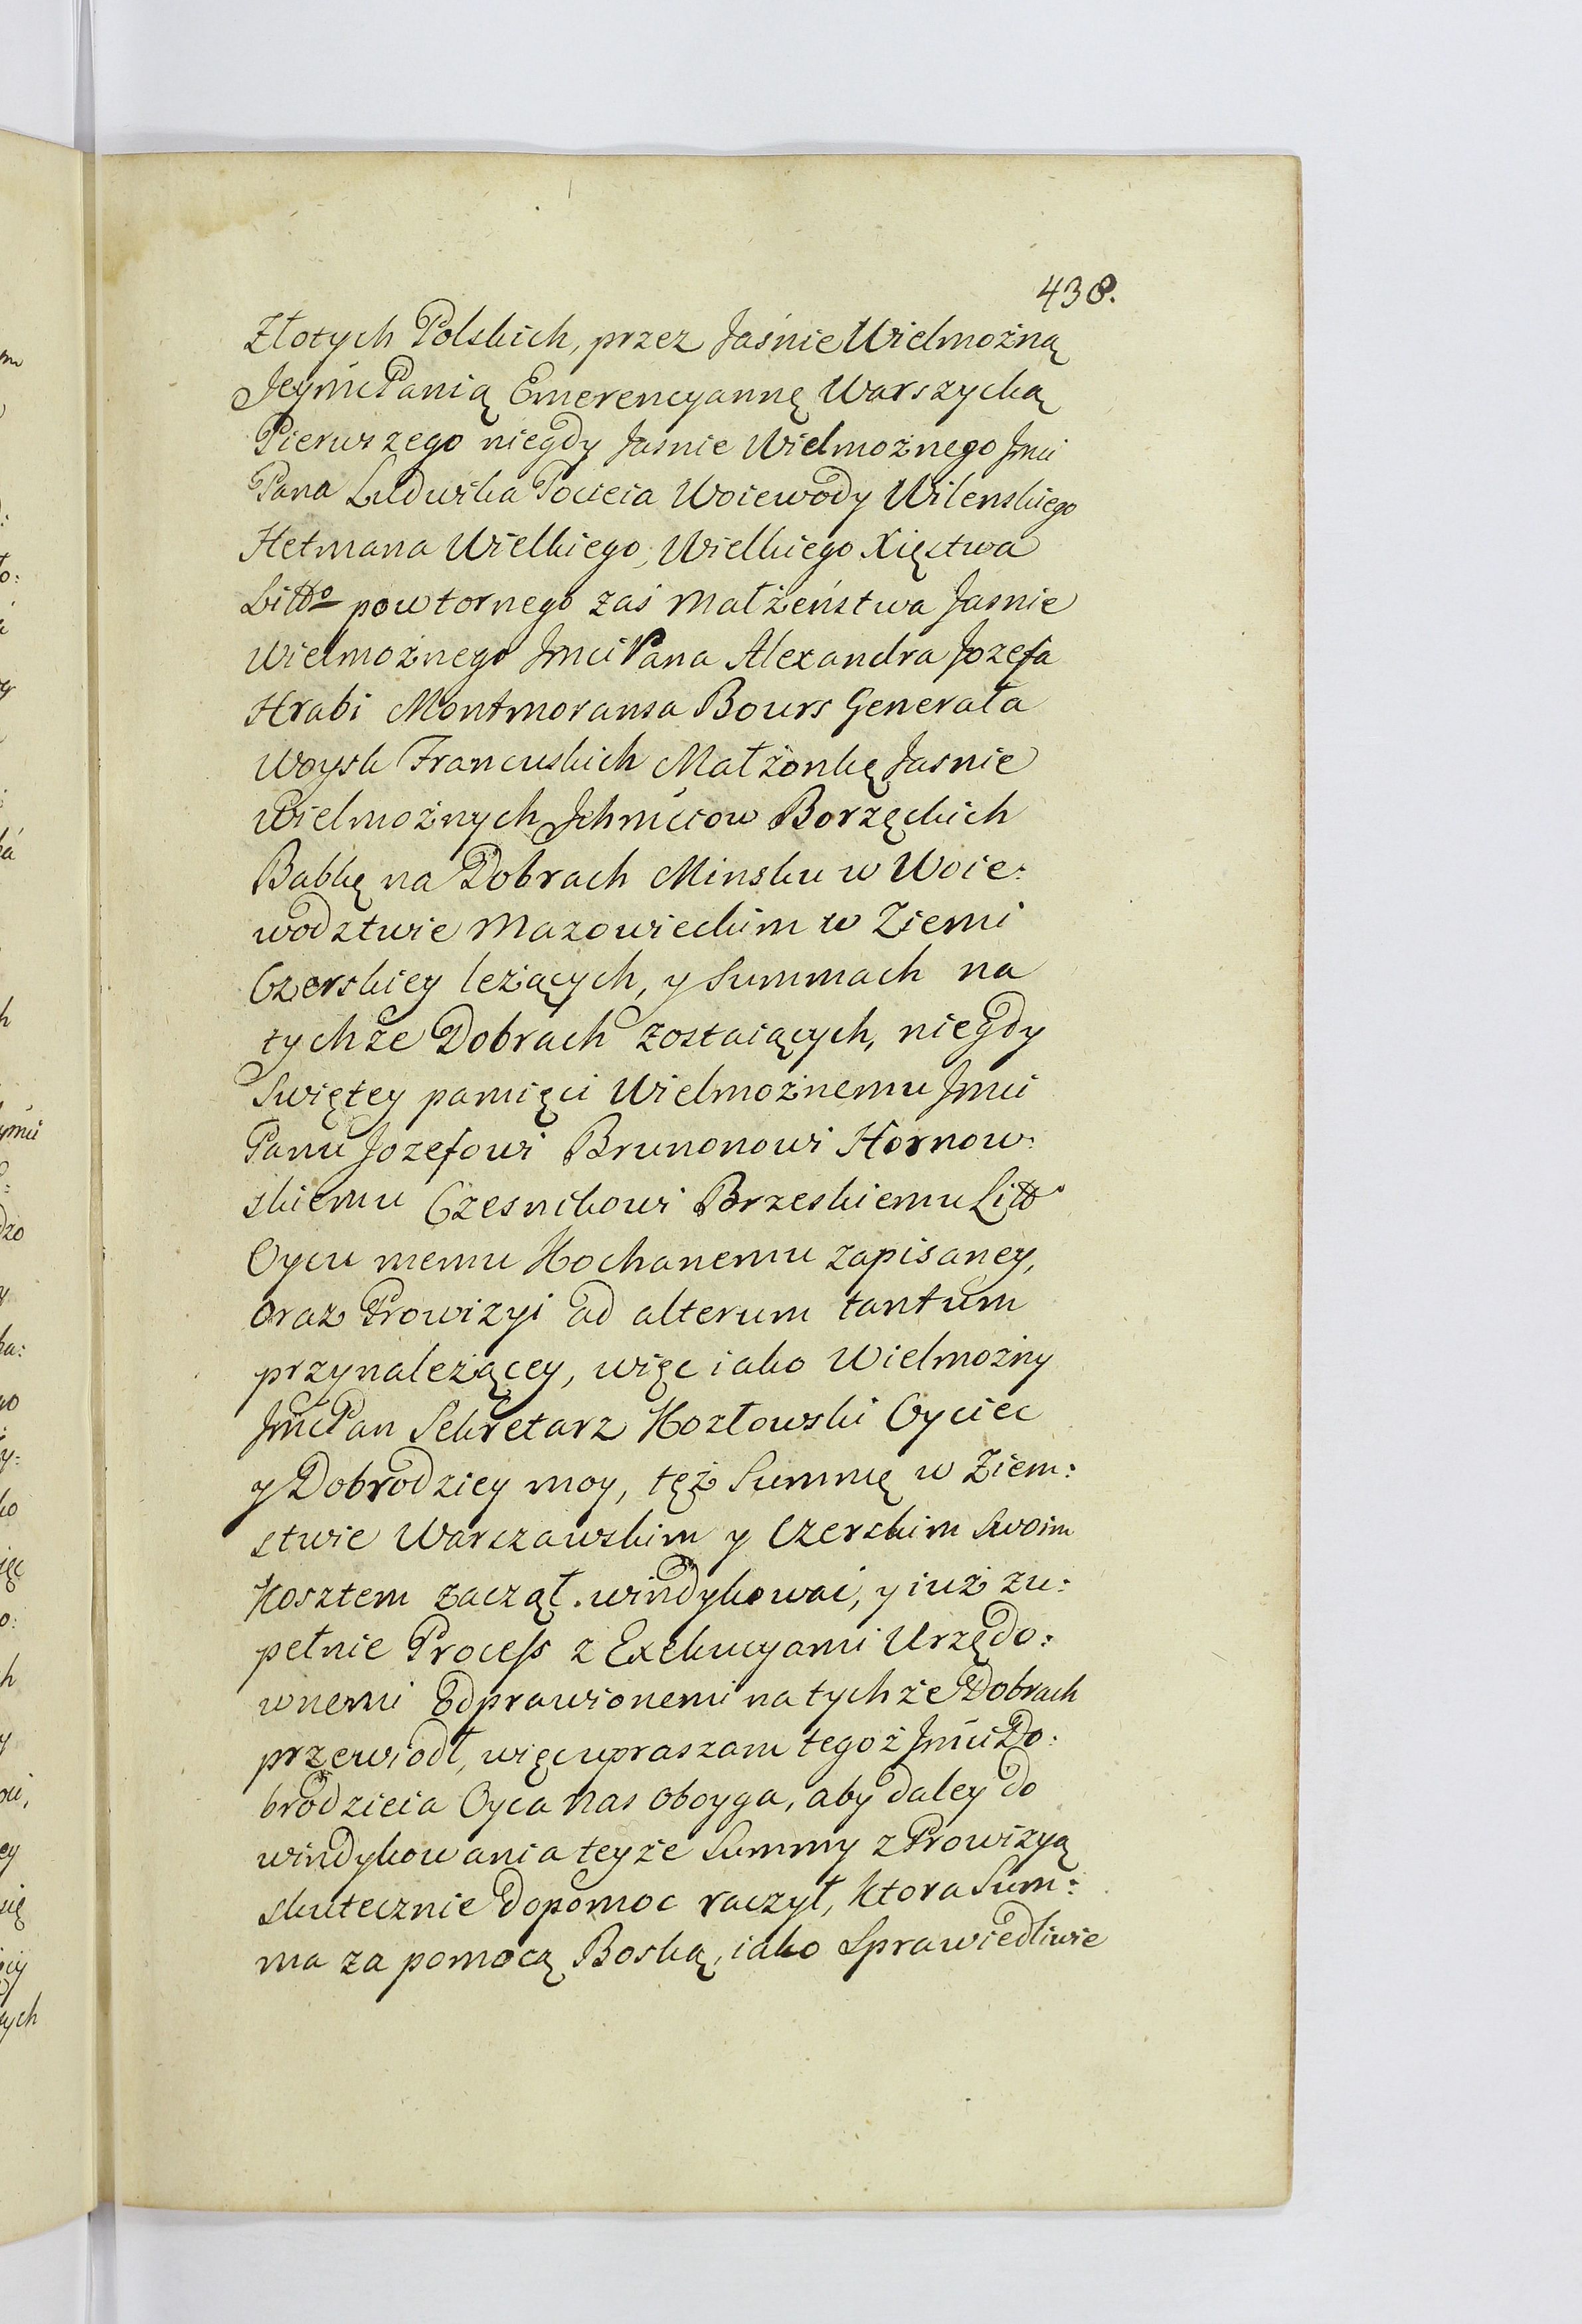 438.
Złotych Polskich, przez Jaśnie Wielmożną
JeymćPanią Emerencyannę Warszycką
Pierwszego niegdy Jasnie Wielmożnego Jmći
Pana Ludwika Pocieia Woiewody Wilenskiego
Hetmana Wielkiego, Wielkiego Xięstwa
Litto powtornego zaś Małżeństwa Jasnie
Wielmożnego Jmci Pana Alexandra Jozefa
Hrabi Montmoransa Bours Generała
Woysk Francuskich Małżonkę Jasnie
Wielmożnych Jchmćiow Borzęckich
Babkę na Dobrach Minsku w Woie:
wodztwie Mazowieckim w Ziemi
Czerskiey leżących, y Summach na
tychże Dobrach zostaiących, niegdy
Swiętey pamięci Wielmożnemu Jmci
Panu Jozefowi Brunonowi Hornow:
skiemu Czesnikowi Brzeskiemu Litto
Oycu memu Kochanemu zapisaney,
oraz Prowizyi ad alterum tantum
przynależącey, więc iako Wielmożny
JmćPan Sekretarz Kozłowski Oyciec
y Dobrodziey moy, tęż Summę w Ziem:
stwie Warszawskim y Czerskim swoim
Kosztem zaczął windykować, y iuż zu:
pełnie Process z Exekucyami Urzędo:
wnemi Odprawionemi na tychże Dobrach
przewiodł, więc upraszam tegoż Jmći Do:
brodzieia Oyca nas oboyga, aby daley do
windykowania teyże Summy z Prowizyą
skutecznie dopomoc raczył, ktora Sum:
ma za pomocą Boską, iako Sprawiedliwie